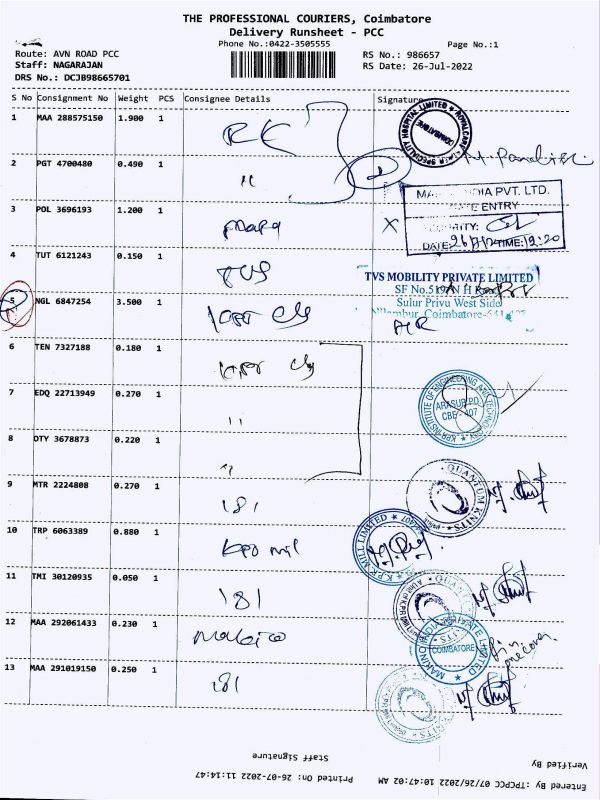 THE PROFESSIONAL COURIERS, Coimbatore
Delivery Runsheet - PCC
Phone No.:0422-3505555
Page No.:1
Route: AVN ROAD PCC
RS No.: 986657
Staff: NAGARAJAN
RS Date: 26-Jul-2022
DRS No.: DCJB98665701
S No Consignment No Weight PCS Consignee Details Signature
1 MAA 288575150 1.900 1 RK
ROYALCARE SUPER SPECIALITY HOSPITAL LIMITED
COIMBATORE
2 PGT 4700480 0.490 1 "
PVT. LTD.
ENTRY
3 POL 3696193 1.200 1
DATE: TIME: 12:20
4 TUT 6121243 0.150 1 TVS
TVS MOBILITY PRIVATE LIMITED
SF No.
Sulur Privu West Side
Coimbatore
5 NGL 6847254 3.500 1 KPR Clg
6 TEN 7327188 0.180 1 KPR Clg
KPR INSTITUTE OF ENGINEERING AND TECHNOLOGY
ARASUR PO.
CBE - 407
7 EDQ 22713949 0.270 1 "
8 DTY 3678873 0.220 1 "
9 MTR 2224808 0.270 1 181
QUANTUM KNITS
10 TRP 6063389 0.880 1 mil
K.P.R.MILL LIMITED
11 TMI 30120935 0.050 1 181
12 MAA 292061433 0.230 1
PRIVATE LIMITED
COIMBATORE
13 MAA 291019150 0.250 1 181
Staff Signature
Verified By
Printed On: 26-07-2022 11:14:47
Entered By :TPCPCC 07/26/2022 10:47:02 AM